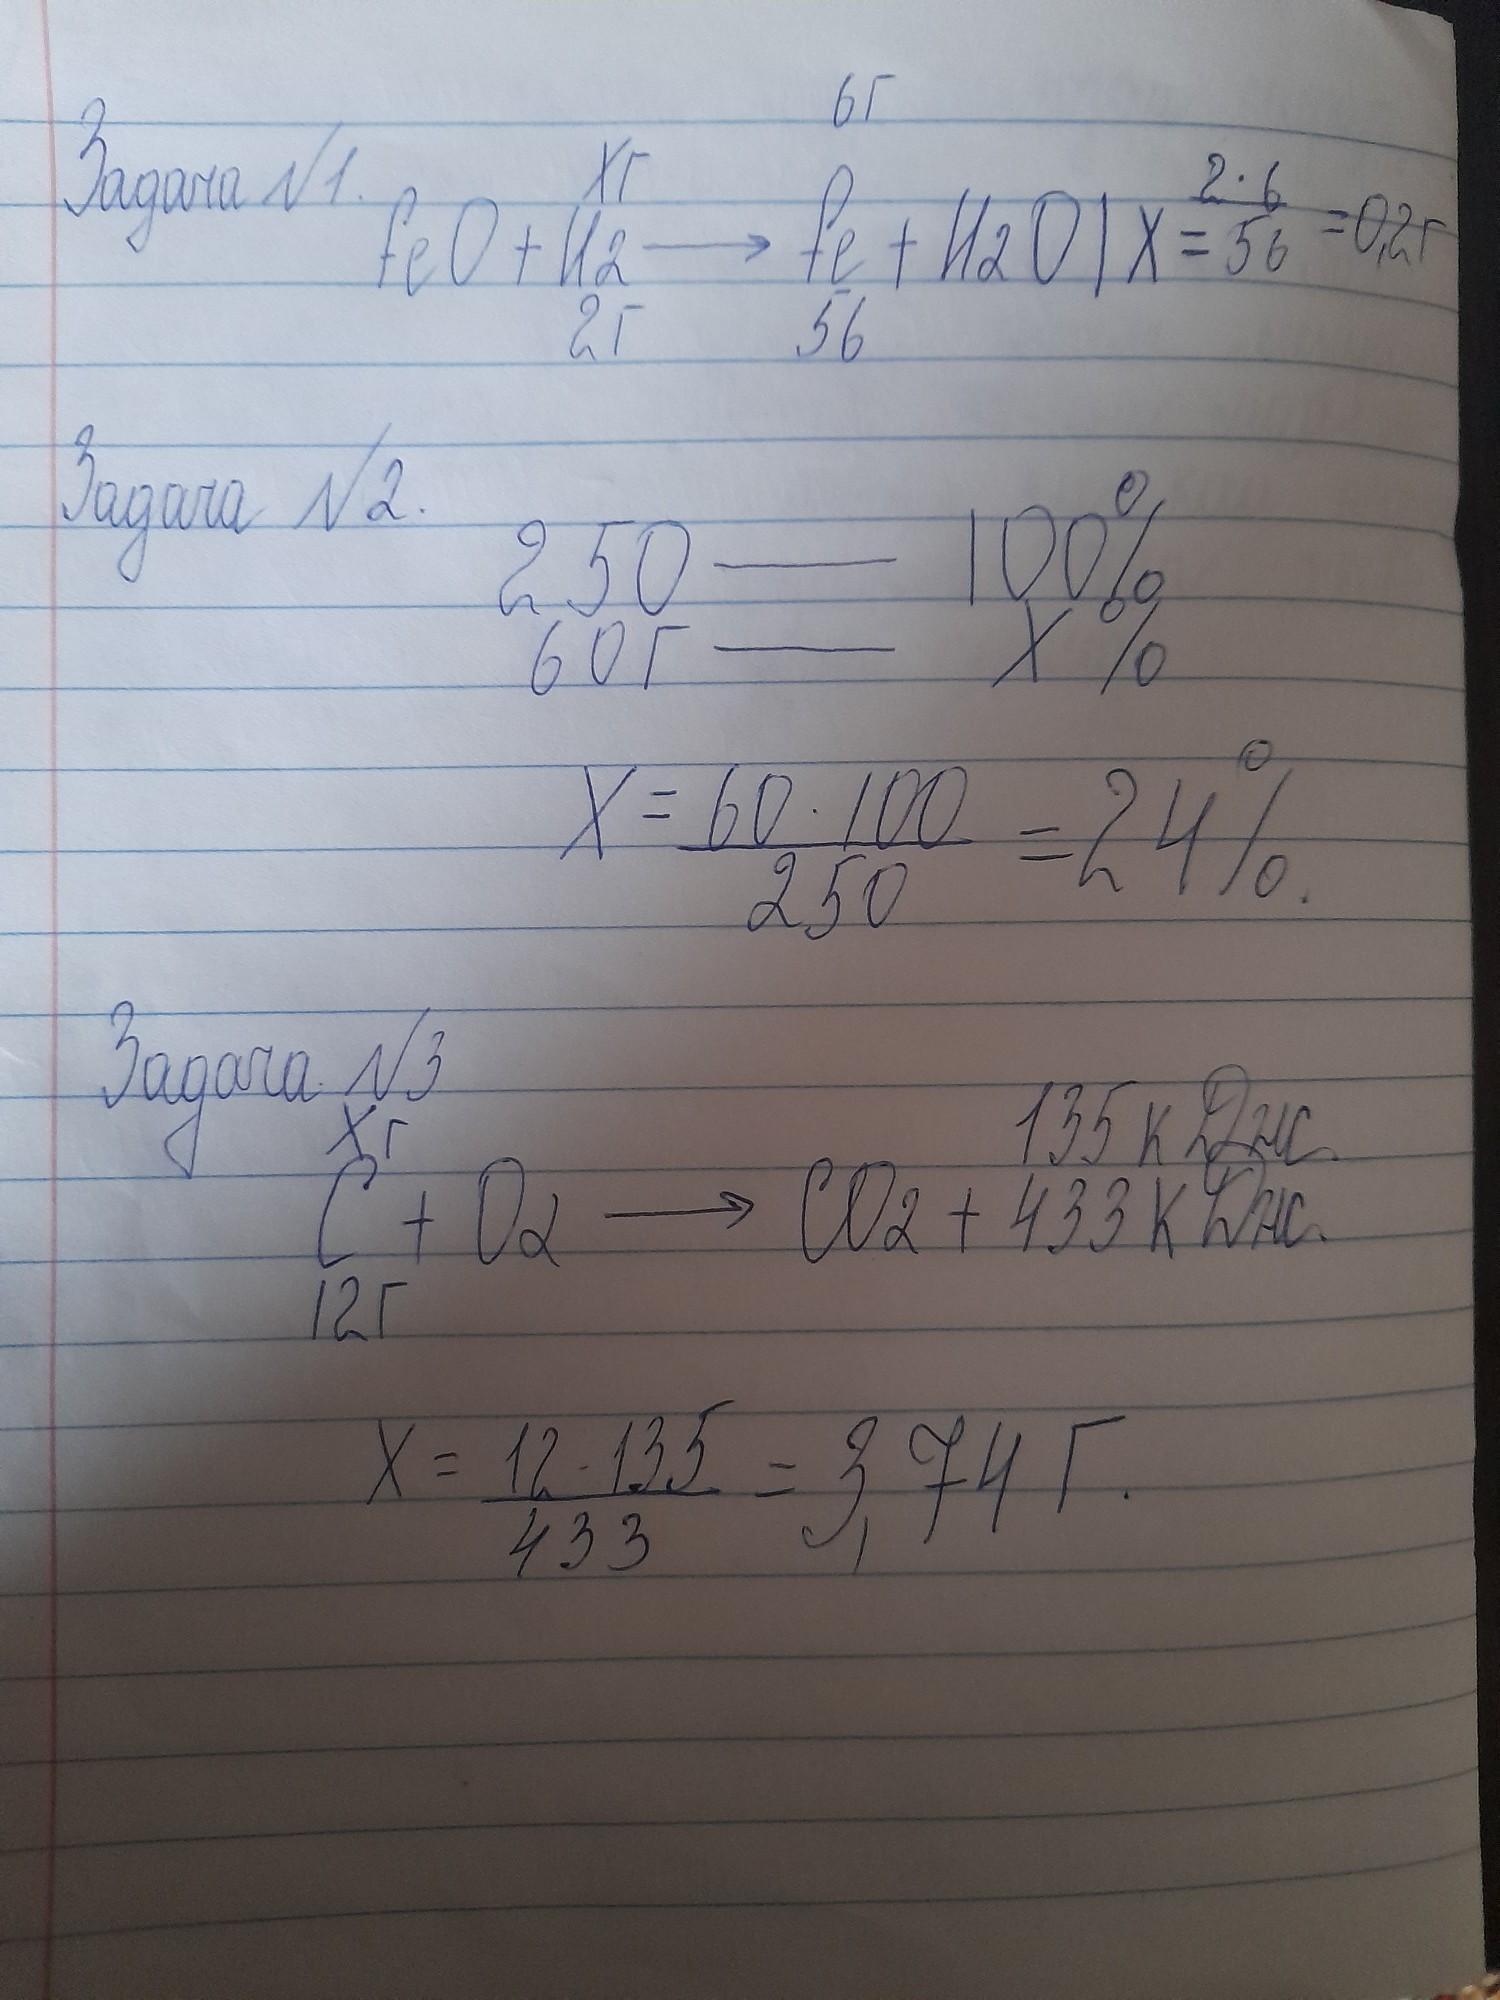 6г
Задача №1. хг
FeO + H2 → Fe + H2O | X = 2·6/56 = 0,2г
2г 56
Задача №2.
250 — 100%
60г — X%
X = 60·100/250 = 24%.
Задача №3
Xг 135 кДж.
C + O2 → CO2 + 433 кДж.
12г
X = 12·135/433 = 3,74 г.